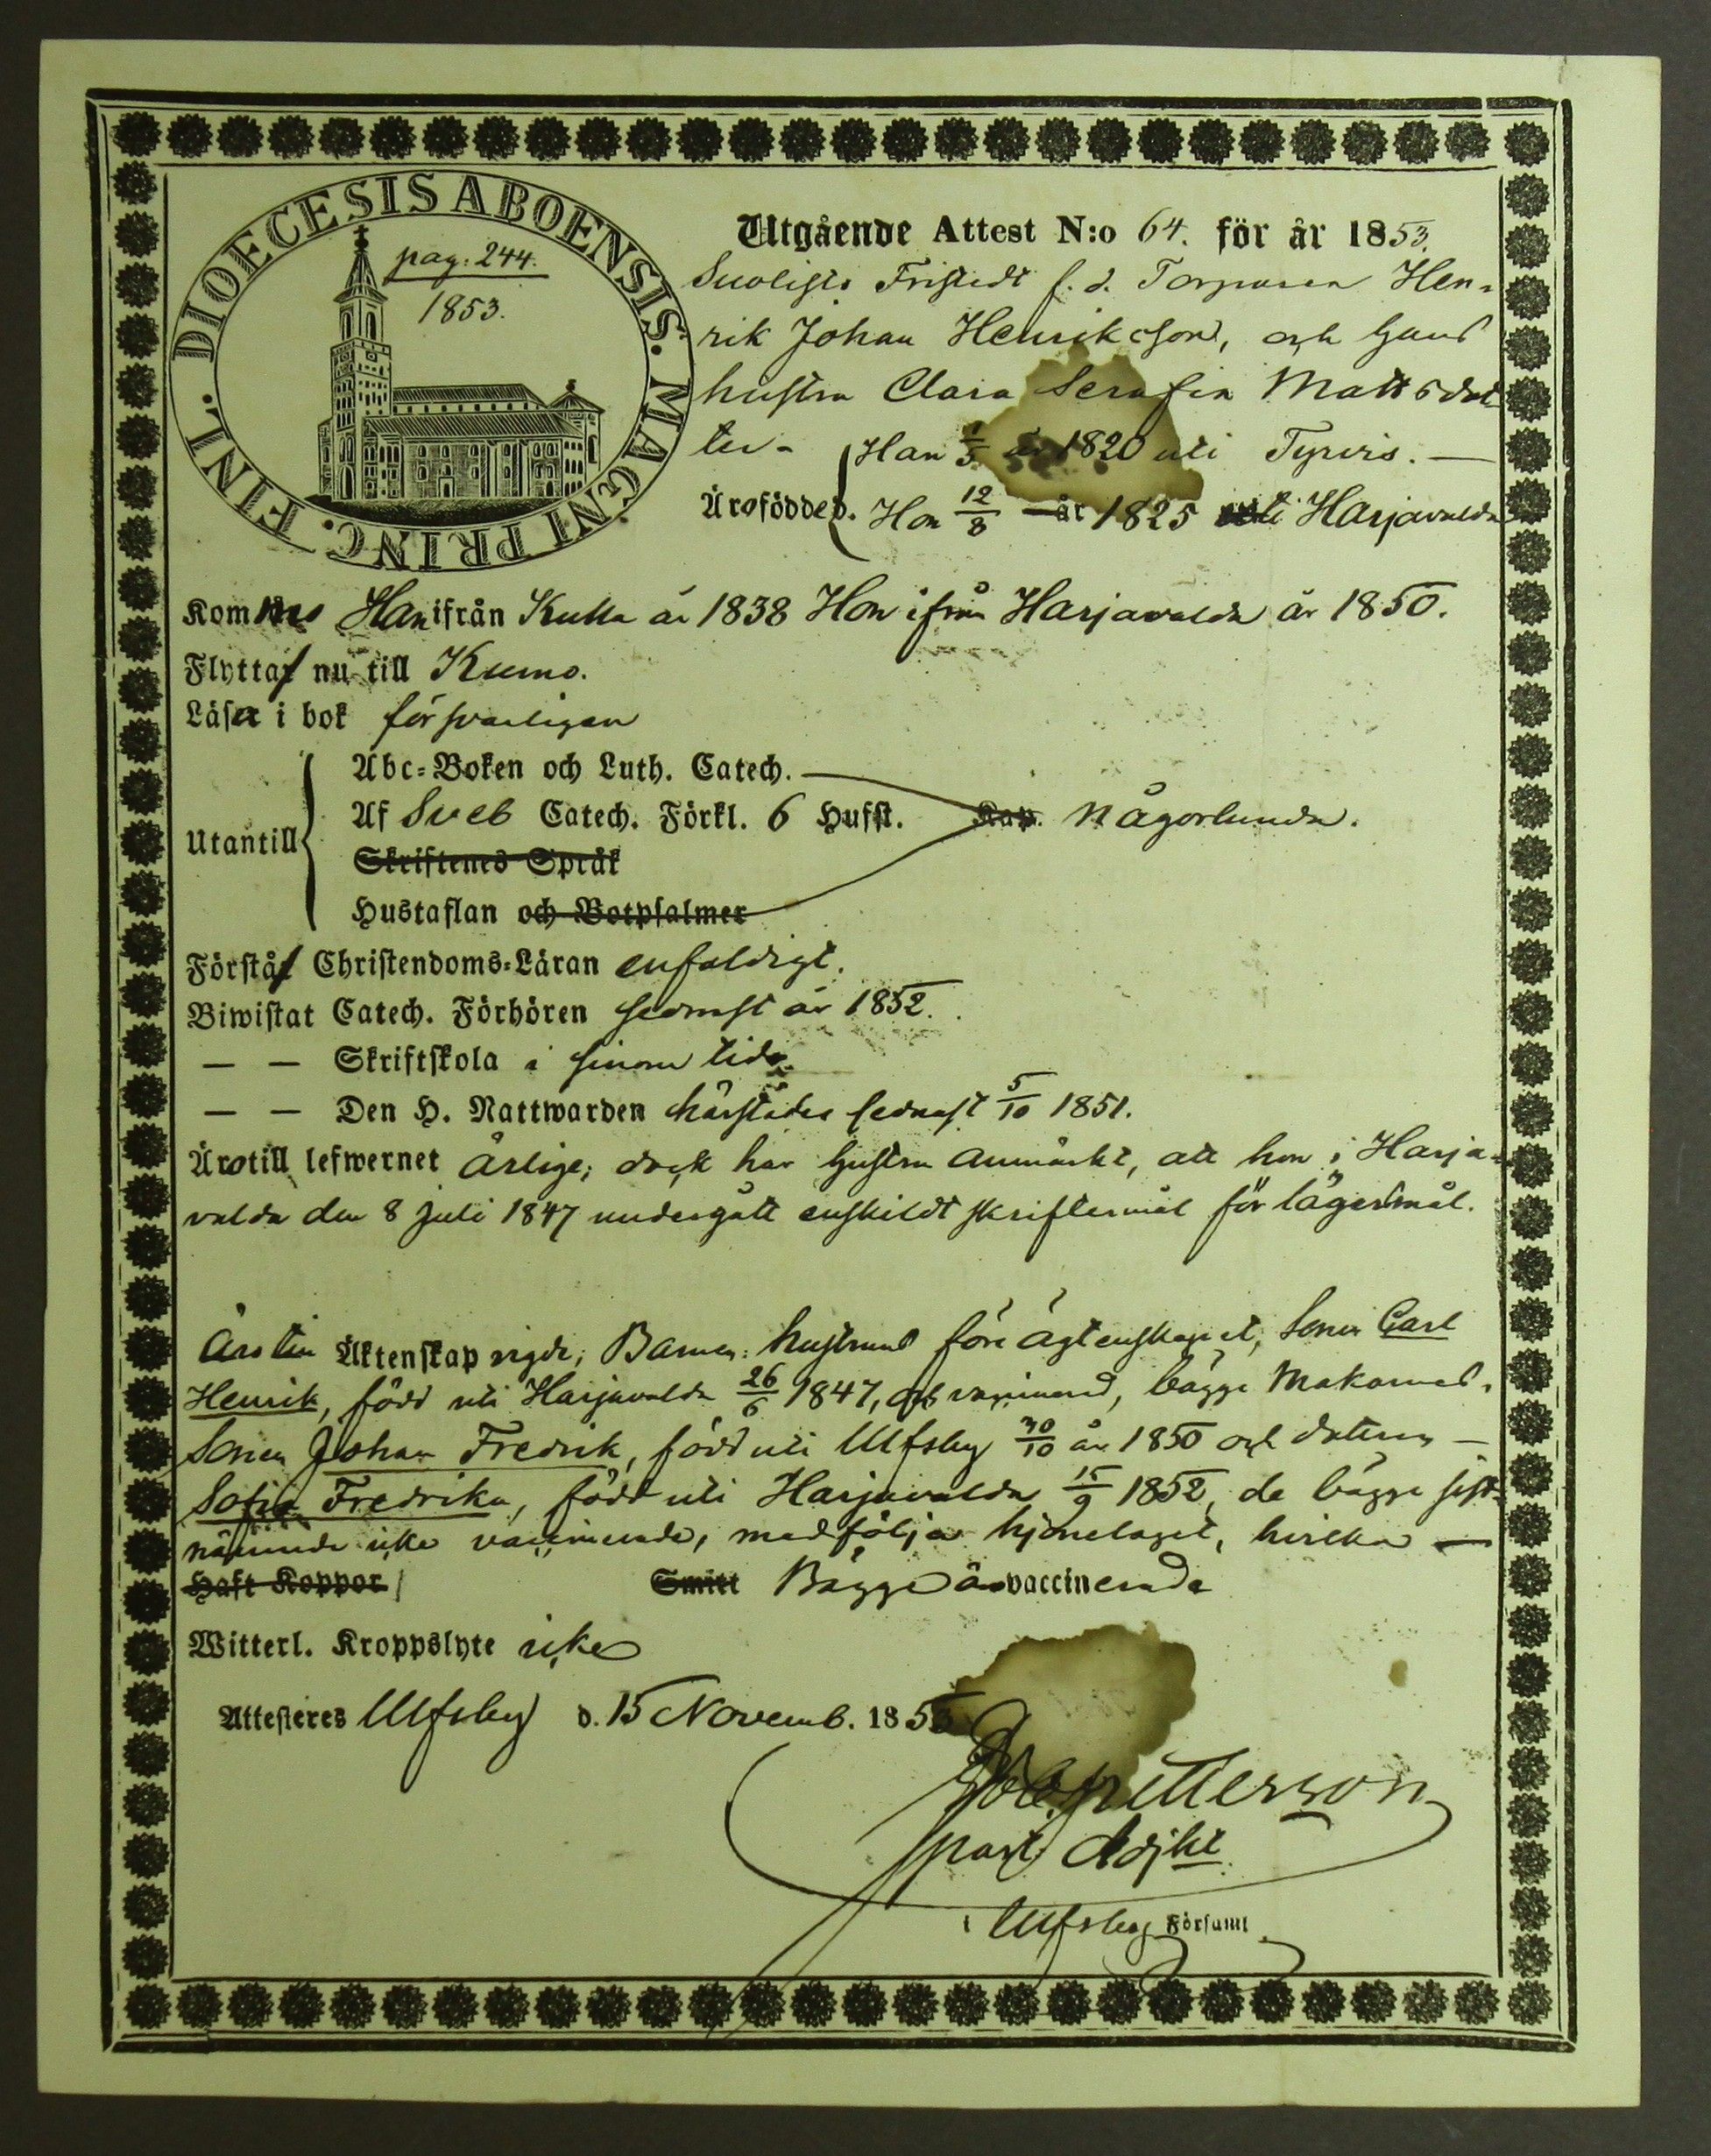 DIOECESIS ABOENSIS. MAGNI PRINC. FINL.
pag. 244.
1853.
Utgående Attest N:o 64. för år 1853.
Fristedt f. d. Torparen Hen-
rik Johan Henriksson, och hans
hustru Clara Serafia Mattsdot-
ter -
Äro födde d. Han 1/5 år 1820 uti Tyrvis. —
Hon 12/8 — år 1825 uti Harjavalda
Komne Han ifrån Kulla år 1838 Hon ifrån Harjavalda år 1850.
Flytta nu till Kumo.
Läsa i bok försvarligen
Utantill
Abc-Boken och Luth. Catech.
Af Sveb Catech. Förkl. 6 Hufst. Kap. någorlunda.
Skriftenes Språk
Hustaflan och Botpsalmer
Förstå Christendoms-Läran enfaldigt.
Biwistat Catech. Förhören sednast år 1852.
— — Skriftskola i sinom tid.
— — Den H. Nattwarden härstädes sednast 5/10 1851.
Äro till lefwernet ärlige; dock har hustrun anmärkt, att hon i Harja-
valda den 8 Juli 1847 undergått enskildt skriftermål för lägersmål.
Äro till Äktenskap vigde; Barnen: hustruns före ägtenskapet, Sonen Carl
Henrik, född uti Harjavalda 26/6 1847, vaccinerad, bägge Makarnes,
Sonen Johan Fredrik, född uti Ulfsby 30/10 år 1850 och dottren —
Sofia Fredrika, född uti Harjavalda 15/9 1852, de bägge sist-
nämnde icke vaccinerade, medfölja hjonelaget, hvilka —
Haft Koppor Smitt Bägge äro vaccinerade
Witterl. Kroppslyte icke
Attesteres Ulfsby d. 15 Novemb. 1853
Pettersson
past. Adjkt
i Ulfsby Församl